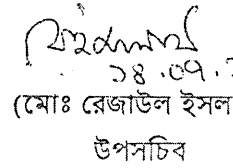 ১৪.০৭.
(মোঃ রেজাউল ইসল
উপসচিব